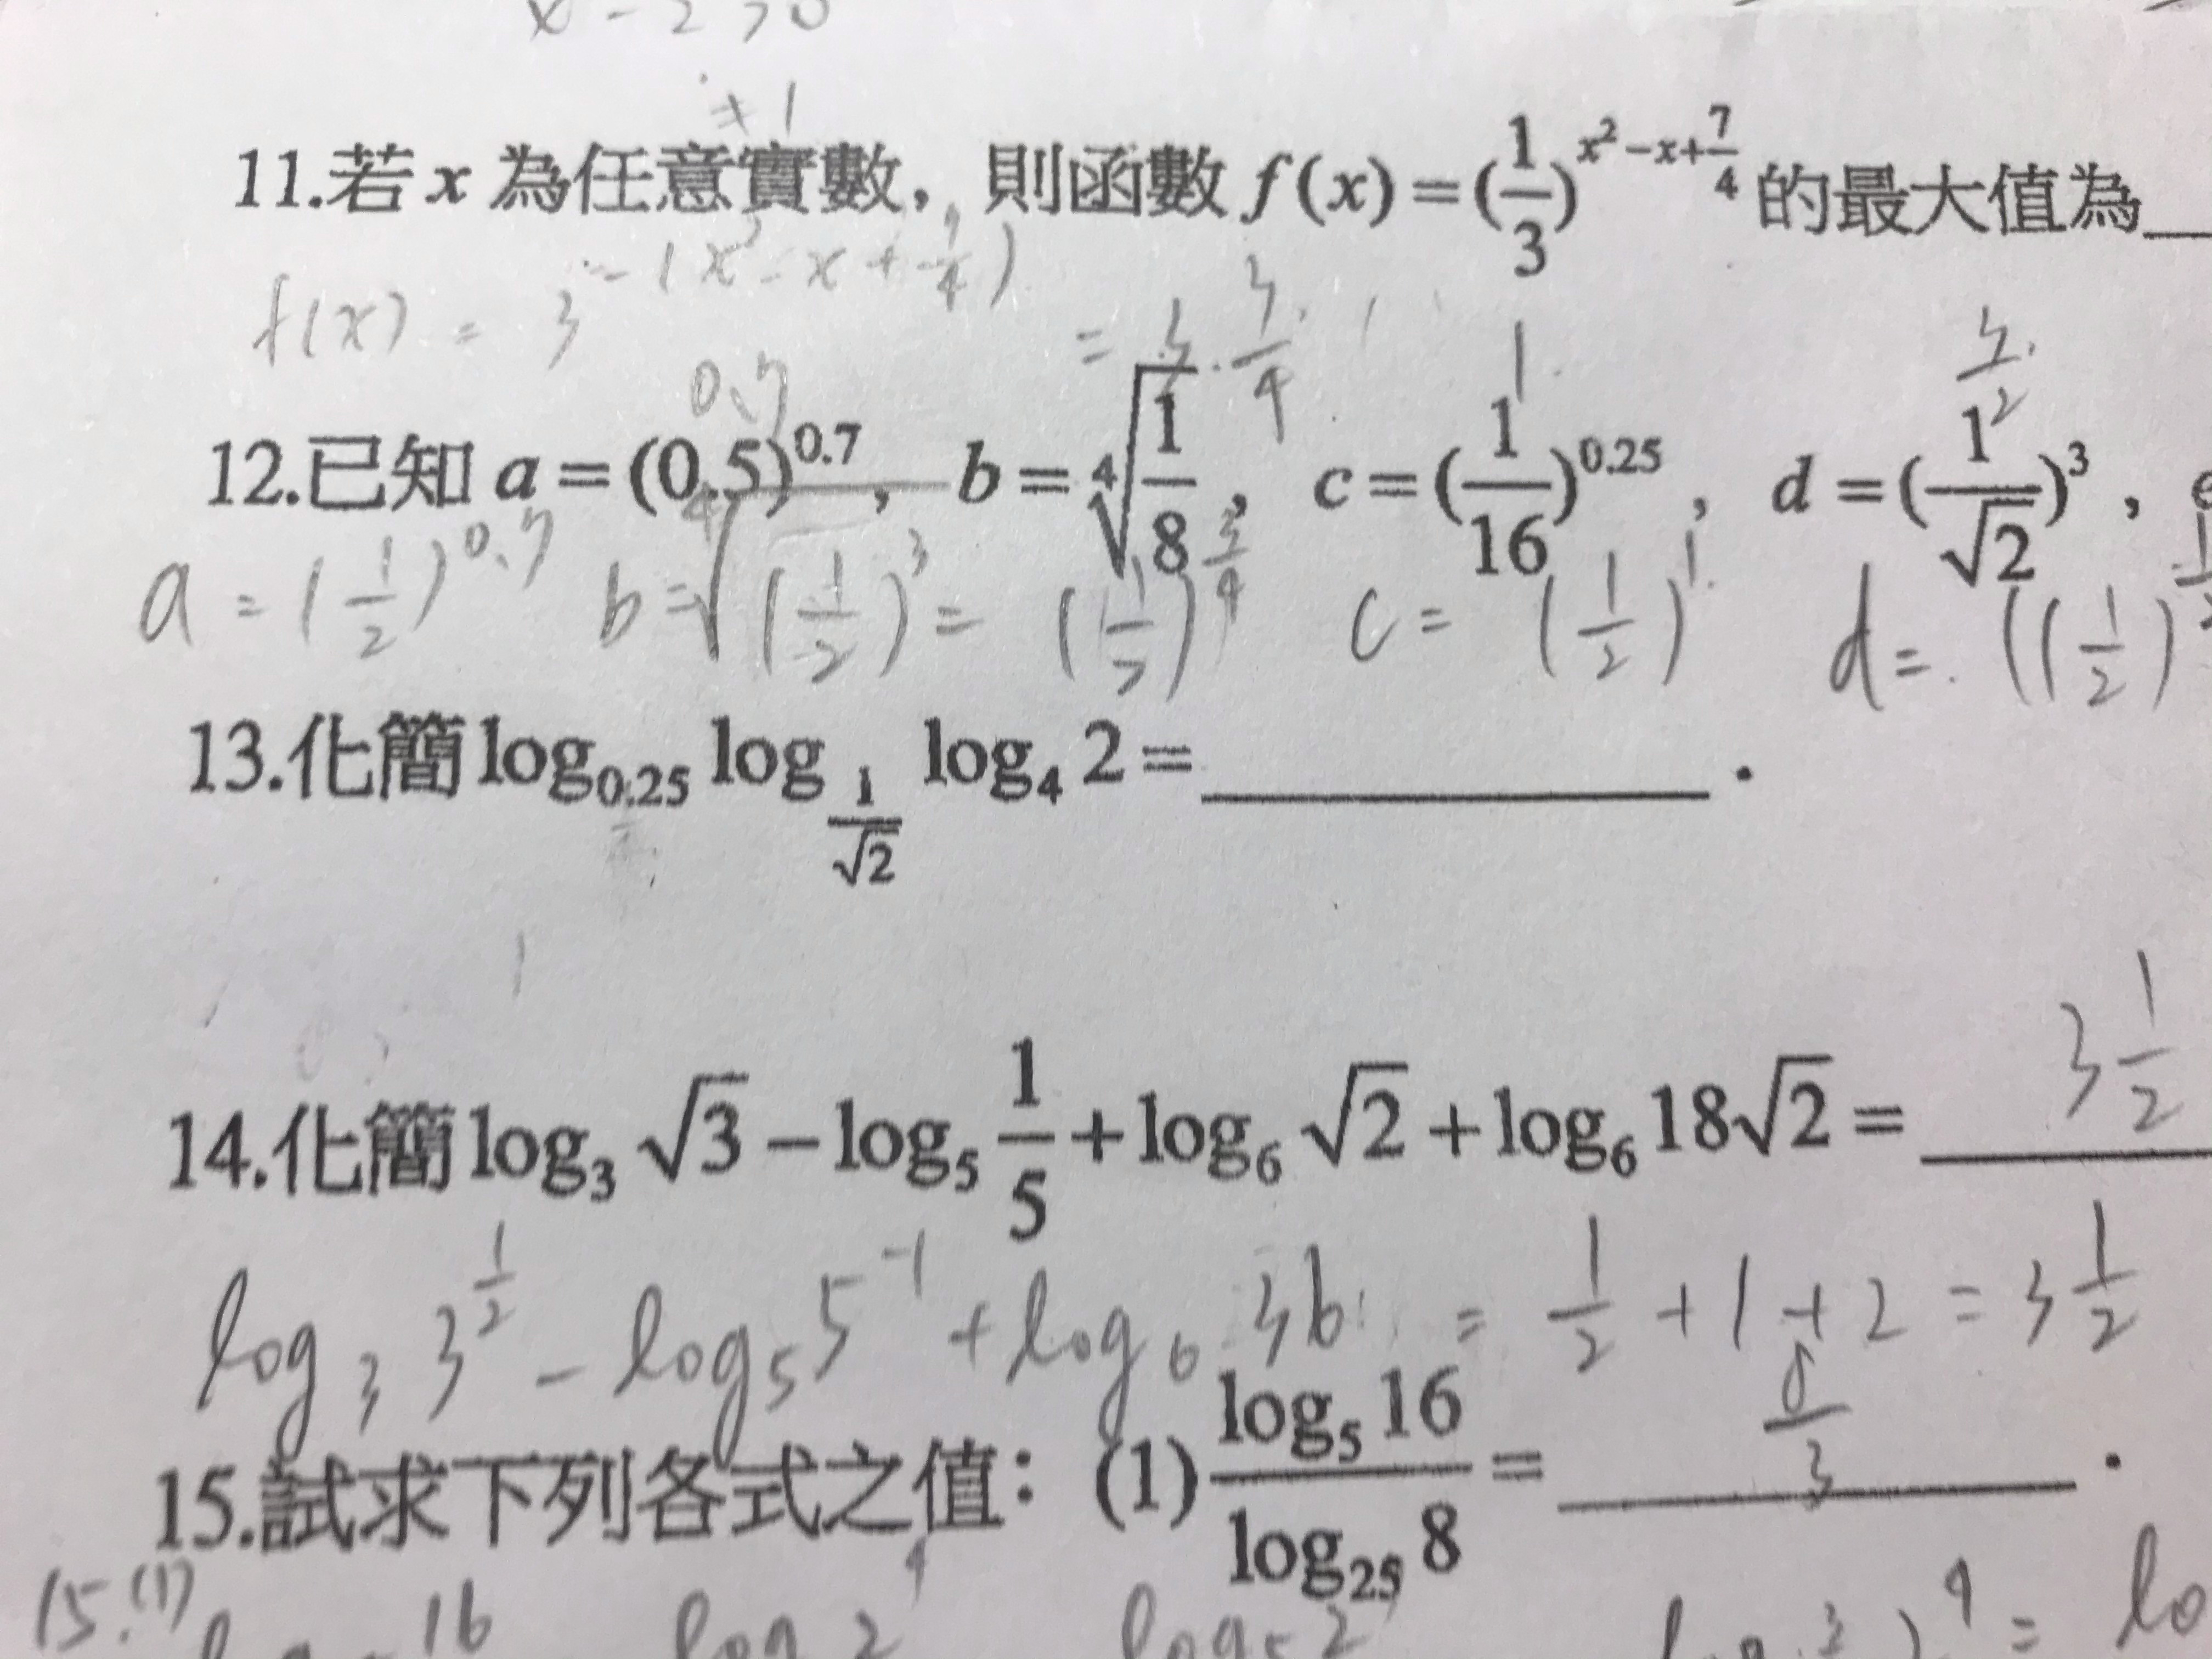 x - 2 > 0
11.若 x 為任意實數，則函數 f(x) = (1/3)^(x²-x+7/4) 的最大值為
f(x) = 3^-(x²-x+7/4)
12.已知 a = (0.5)^0.7，b = ⁴√(1/8)，c = (1/16)^0.25，d = (1/√2)^3，
a = (1/2)^0.7 b = ⁴√(1/2)^3 = (1/2)^(3/4) c = (1/2)^1 d = ((1/2)
13.化簡 log_0.25 log_(1/√2) log_4 2 = ________ .
14.化簡 log_3 √3 - log_5 1/5 + log_6 √2 + log_6 18√2 = 3 1/2
log_3 3^(1/2) - log_5 5^-1 + log_6 36 = 1/2 + 1 + 2 = 3 1/2
15.試求下列各式之值：(1) log_5 16 / log_25 8 = 8/3 .
15.(1)